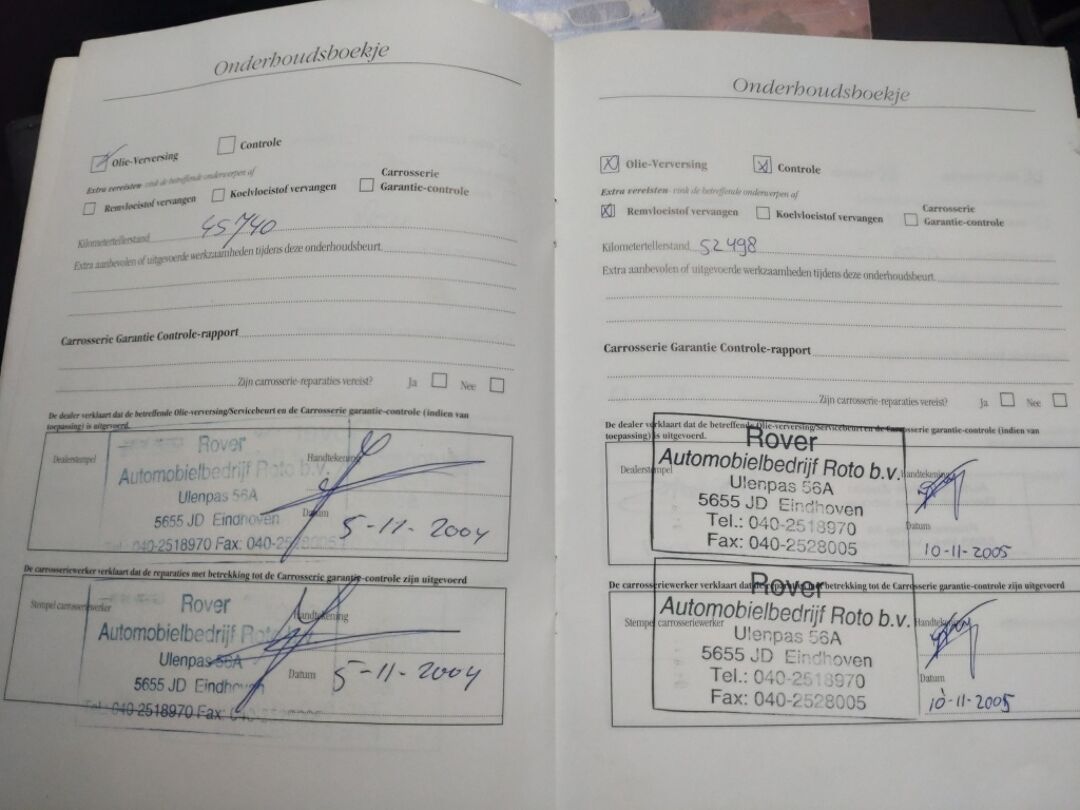 Onderhoudsboekje
Olie-Verversing
Controle
Extra vereisten - vink de betreffende onderwerpen af
Remvloeistof vervangen
Koelvloeistof vervangen
Carrosserie
Garantie-controle
Kilometertellerstand 45740
Extra aanbevolen of uitgevoerde werkzaamheden tijdens deze onderhoudsbeurt.
Carrosserie Garantie Controle-rapport
Zijn carrosserie-reparaties vereist? Ja Nee
De dealer verklaart dat de betreffende Olie-verversing/Servicebeurt en de Carrosserie garantie-controle (indien van
toepassing) is uitgevoerd.
Dealerstempel
Rover
Automobielbedrijf Roto b.v.
Ulenpas 56A
5655 JD Eindhoven
Tel.: 040-2518970 Fax: 040-2528005
Handtekening
Datum 5-11-2004
De carrosseriewerker verklaart dat de reparaties met betrekking tot de Carrosserie garantie-controle zijn uitgevoerd
Stempel carrosseriewerker
Rover
Automobielbedrijf Roto
Ulenpas 56A
5655 JD Eindhoven
Tel.: 040-2518970 Fax: 040-
Handtekening
Datum 5-11-2004
Onderhoudsboekje
Olie-Verversing
Controle
Extra vereisten - vink de betreffende onderwerpen af
Remvloeistof vervangen
Koelvloeistof vervangen
Carrosserie
Garantie-controle
Kilometertellerstand 52498
Extra aanbevolen of uitgevoerde werkzaamheden tijdens deze onderhoudsbeurt.
Carrosserie Garantie Controle-rapport
Zijn carrosserie-reparaties vereist? Ja Nee
De dealer verklaart dat de betreffende Olie-verversing/Servicebeurt en de Carrosserie garantie-controle (indien van
toepassing) is uitgevoerd.
Dealerstempel
Rover
Automobielbedrijf Roto b.v.
Ulenpas 56A
5655 JD Eindhoven
Tel.: 040-2518970
Fax: 040-2528005
Handtekening
Datum
10-11-2005
De carrosseriewerker verklaart dat de reparaties met betrekking tot de Carrosserie garantie-controle zijn uitgevoerd
Stempel carrosseriewerker
Rover
Automobielbedrijf Roto b.v.
Ulenpas 56A
5655 JD Eindhoven
Tel.: 040-2518970
Fax: 040-2528005
Handtekening
Datum
10-11-2005